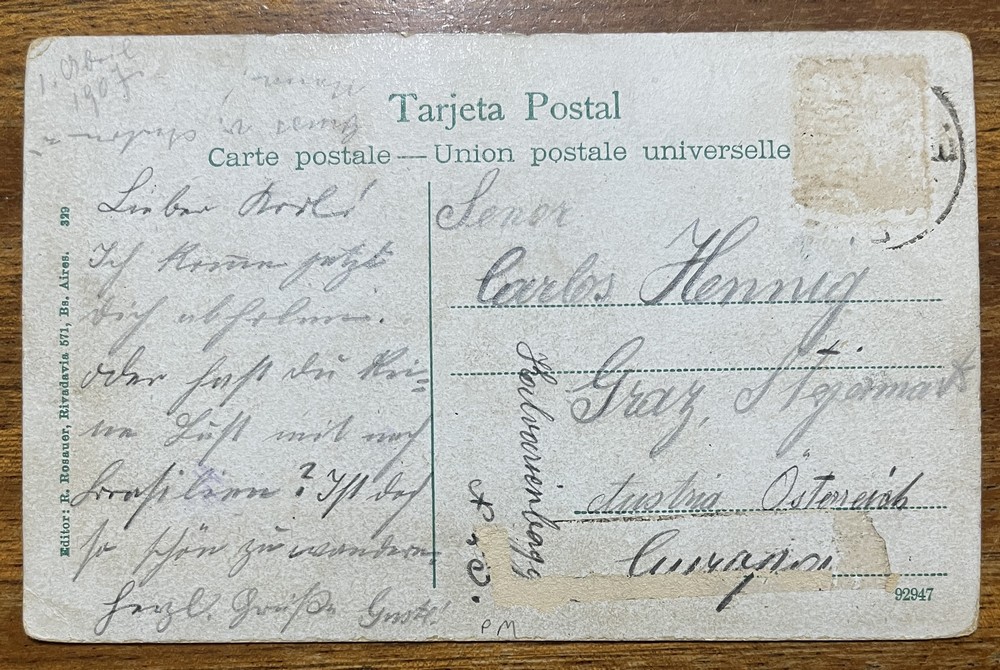 1. April
1907
Tarjeta Postal
Carte postale — Union postale universelle
Editor: R. Rosauer, Rivadavia 571, Bs. Aires. 329
Lieber Karl!
Ich komme jetzt
dich abholen.
Oder hast du kei=
ne Lust mit nach
Brasilien? Ist doch
so schön zu wandern.
Herzl. Grüße Gustl!
Senor
Carlos Hennig
Graz, Stejermark
Austria Österreich
Europa
92947
PM